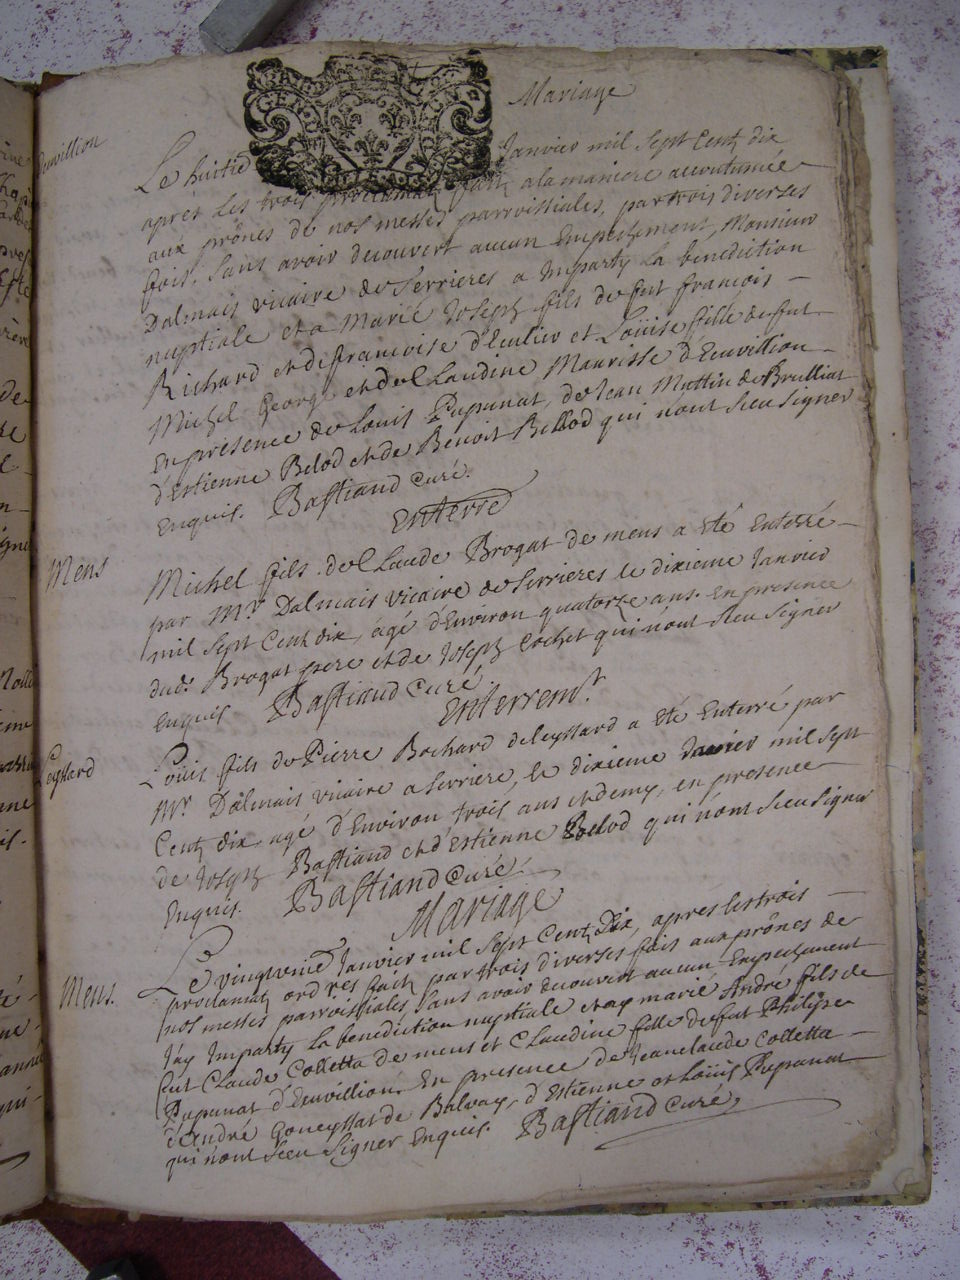 Mariage
Envillion
Le huitie Janvier mil sept Centz dix
apres les trois proclamatz faitz a la maniere accoutumée
aux prônes de nos messes parroissiales, par trois diverses
fois, sans avoir decouvert aucun Empechement, Monsieur
Dalmais vicaire de Serrieres a Imparty la benediction
nuptiale et a Marié Joseph fils de fut françois
Richard et de françoise d'Eculieu et Louise fille de fut
Michel George et de Claudine Maurisse d'Envillion
En presence de Louis Pupunat, de Jean Muttin de Brulliat
d'Estienne Belod et de Benoit Bellod qui n'ont sceu signer
Enquis. Bastiand Curé.
Enterré
Mens
Michel fils de Claude Brogat de mens a eté Enterré
par Mr. Dalmais vicaire de Serrieres le dixieme Janvier
mil sept Centz dix, agé d'Environ quatorze ans. En presence
dud. Brogat pere et de Joseph Cochet qui n'ont sceu signer
Enquis Bastiand Curé
Enterremt.
Leyssard
Louis fils de Pierre Bochard de Leyssard a eté Enterré par
Mr. Dalmais vicaire a Serriere, le dixieme Janvier mil sept
Centz dix, agé d'Environ trois ans et demy, en presence
de Joseph Bastiand et d'Estienne Belod qui n'ont sceu signer
Enquis. Bastiand Curé.
Mariage
Mens.
Le Janvier mil sept Centz Dix, apres les trois
proclamatz faitz par trois diverses fois aux prônes de
nos messes parroissiales, sans avoir decouvert aucun Empechement
J'ay Imparty la benediction nuptiale et ay marié André fils de
fut Claude Colletta de mens et Claudine fille de fut Philipe
Pupunat d'Envillion. En presence de Jeanclaude Colletta
d'André Goneyssat de Balvay, d'Estienne et Louis Pupunat
qui n'ont sceu signer Enquis. Bastiand Curé,